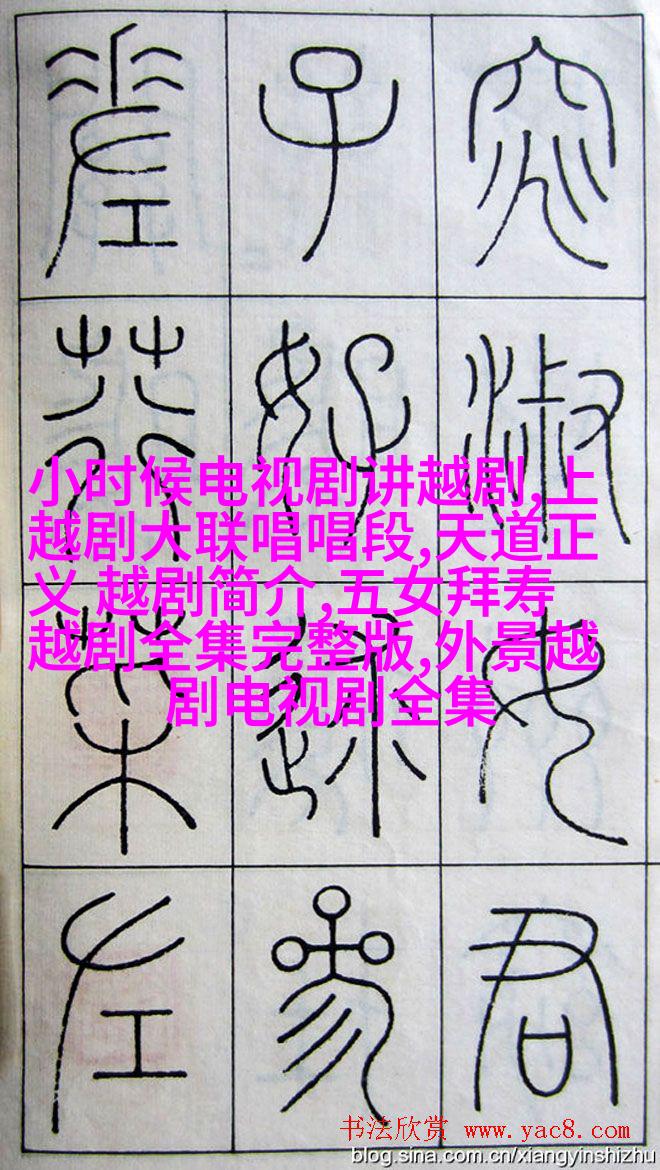 窕淑女君
子好逑參
差荇菜左
小时候电视剧讲越剧,上
越剧大联唱唱段,天道正
义 越剧简介,五女拜寿
越剧全集完整版,外景越
剧电视剧全集
书法欣赏 www.yac8.com
blog.sina.com.cn/xiangyinshizhu